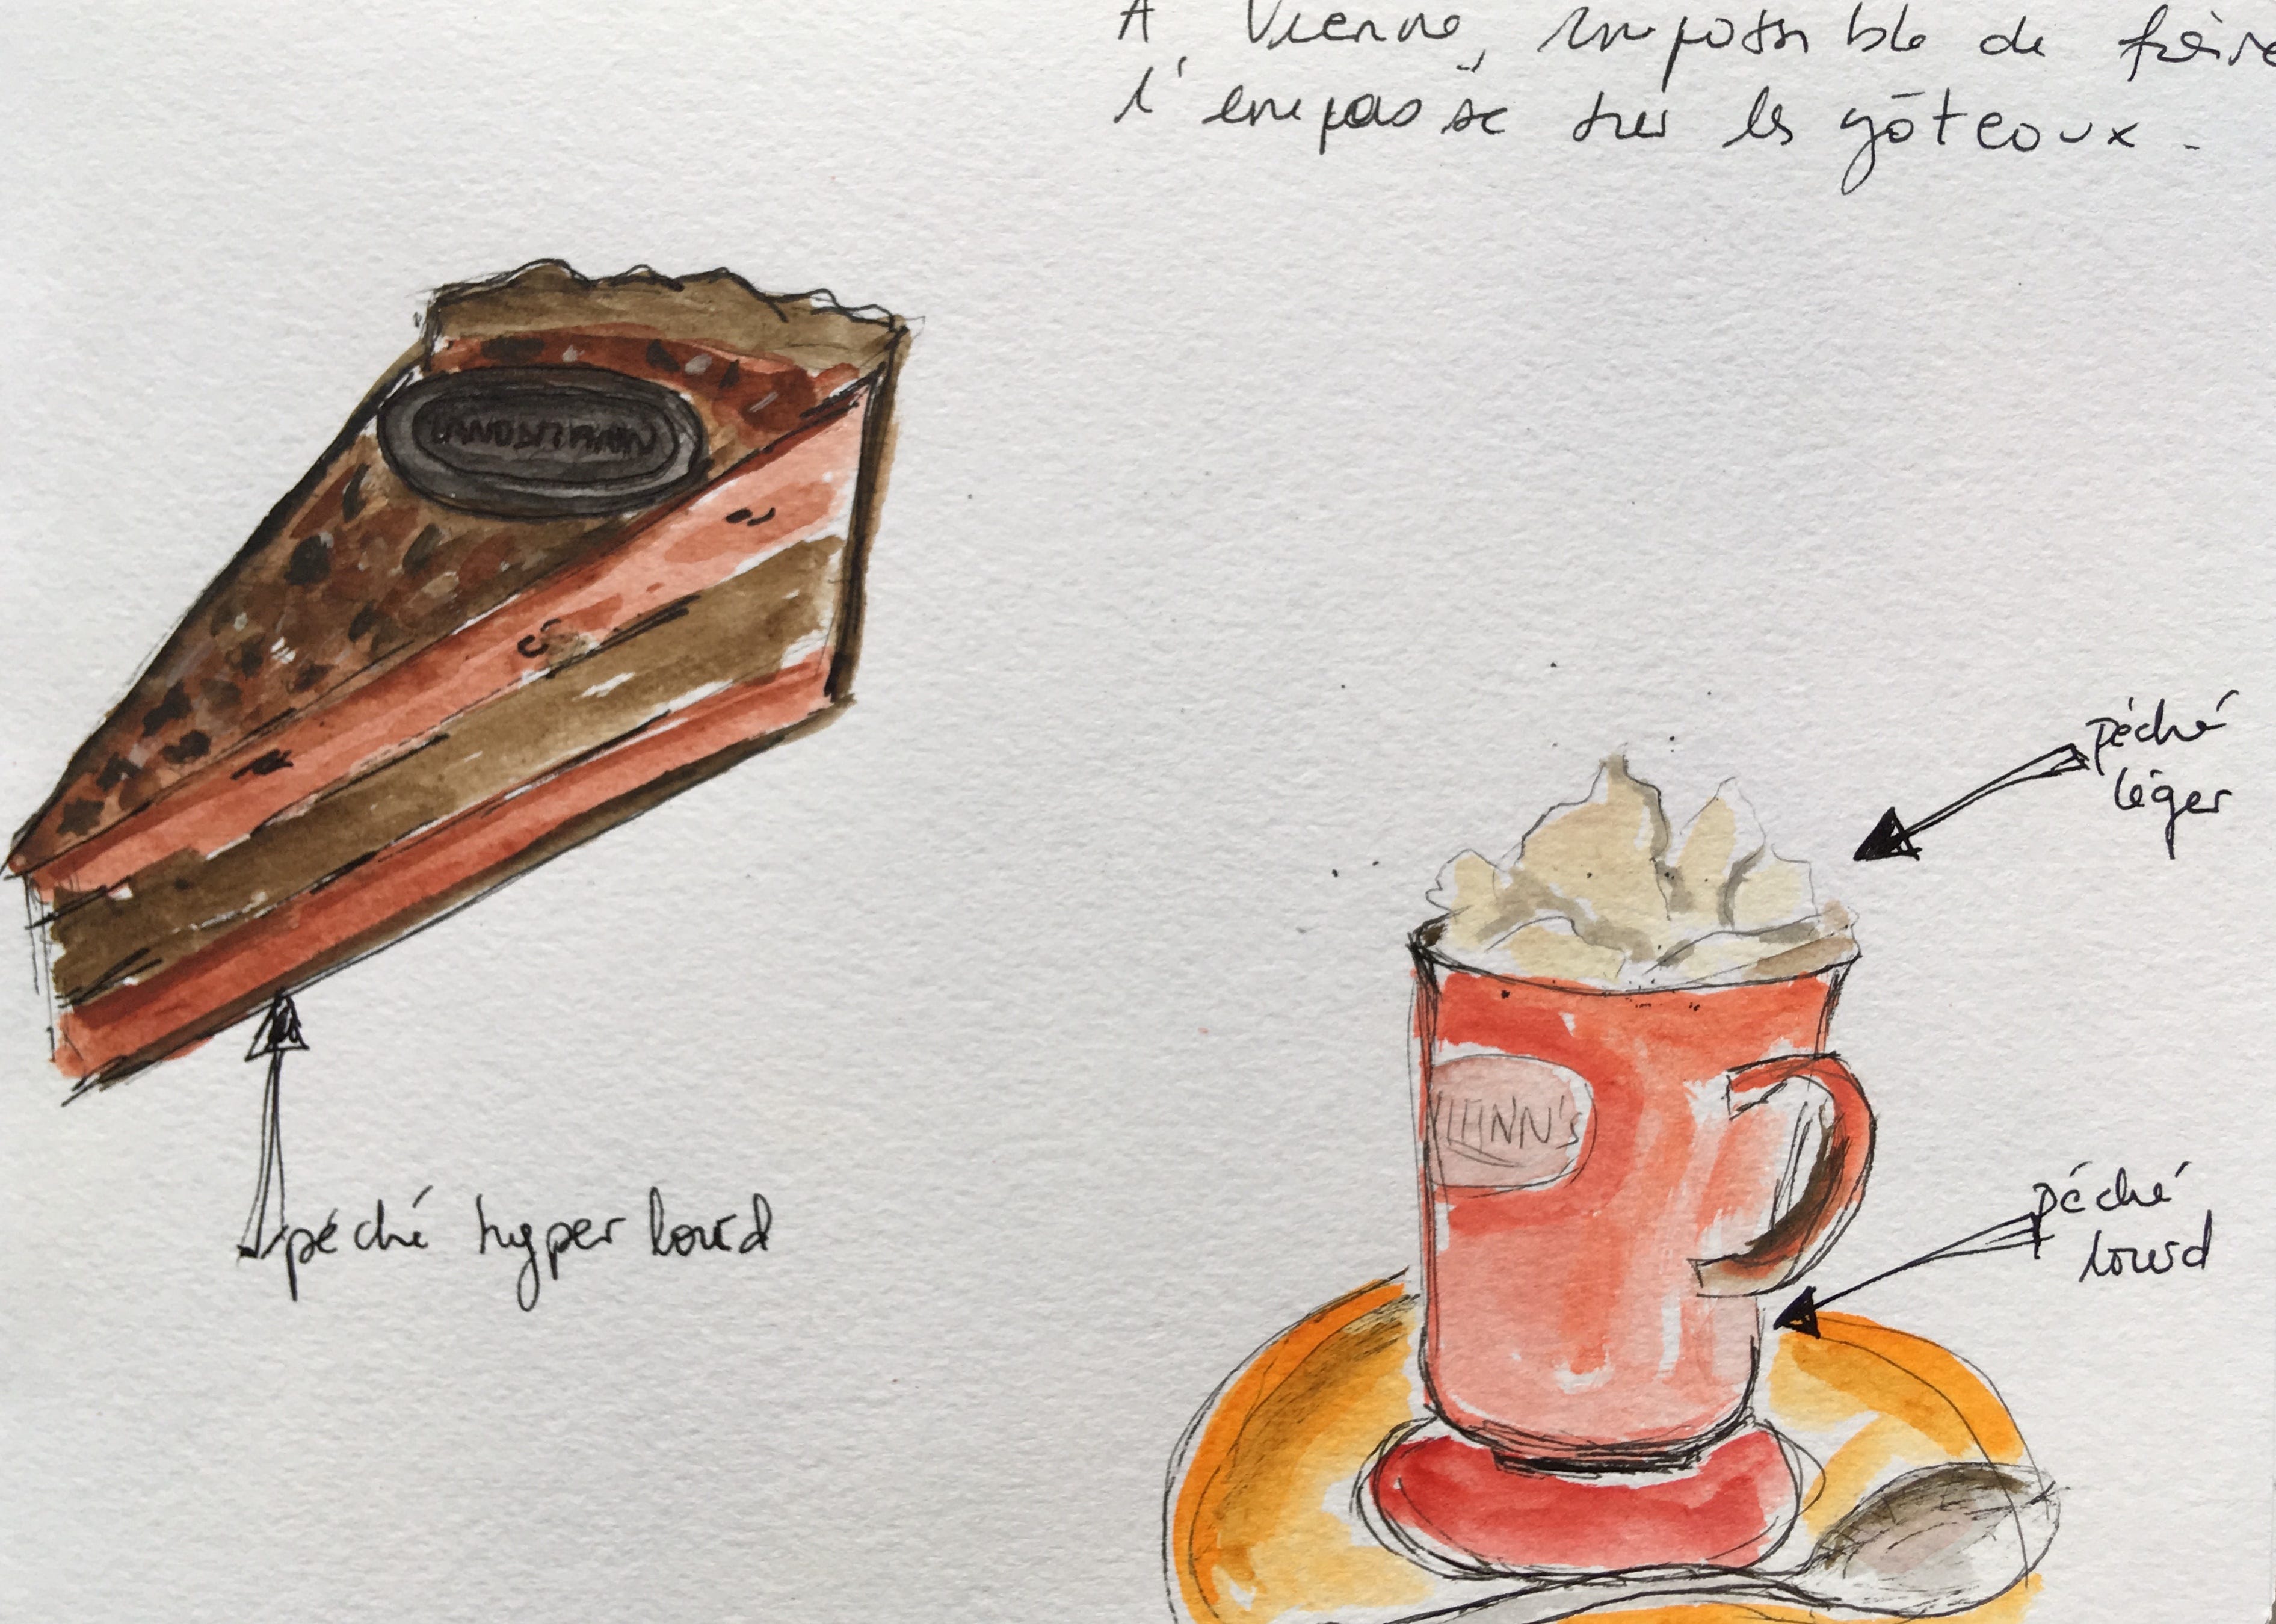 A Vienne, impossible de faire
l'empasse sur les gâteaux.
LANDTMANN
péché
léger
MANN's
péché
lourd
péché hyper lourd